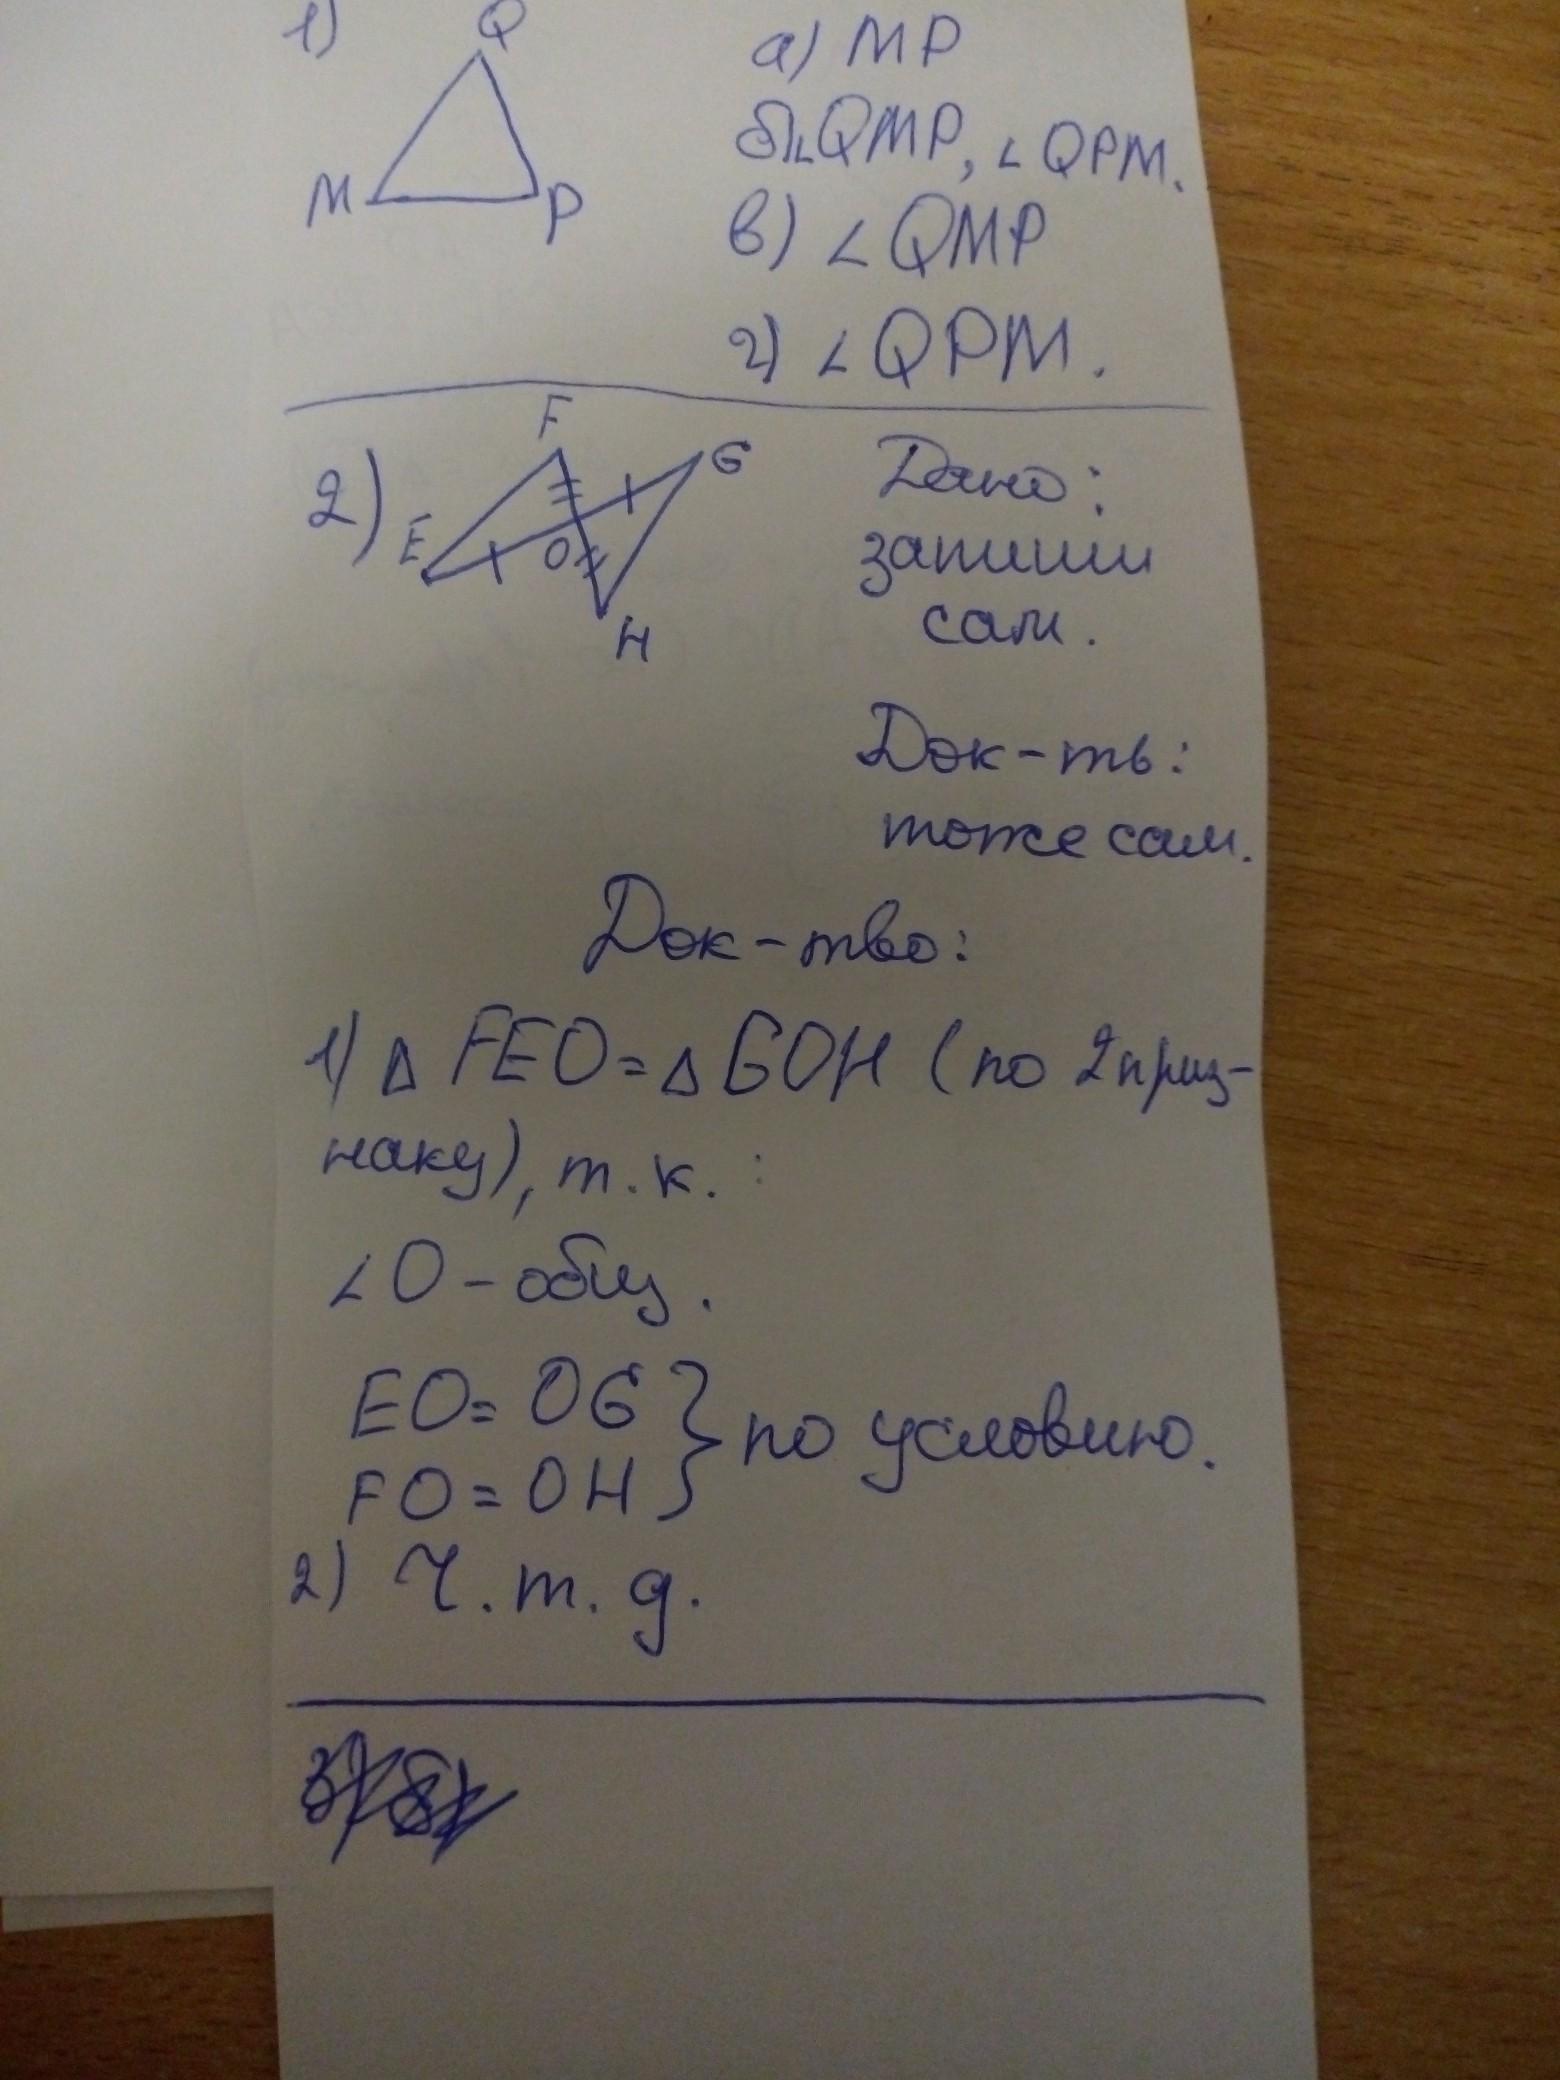 1)
Q
M
P
а) MP
б) ∠QMP, ∠QPM.
в) ∠QMP
г) ∠QPM.
2)
F
G
E
O
H
Дано:
запиши
сам.
Док-ть:
тоже сам.
Док-тво:
1) Δ FEO = Δ GOH (по 2 приз-
наку), т.к. :
∠O - общ.
EO = OG
FO = OH } по условию.
2) Ч.т.д.